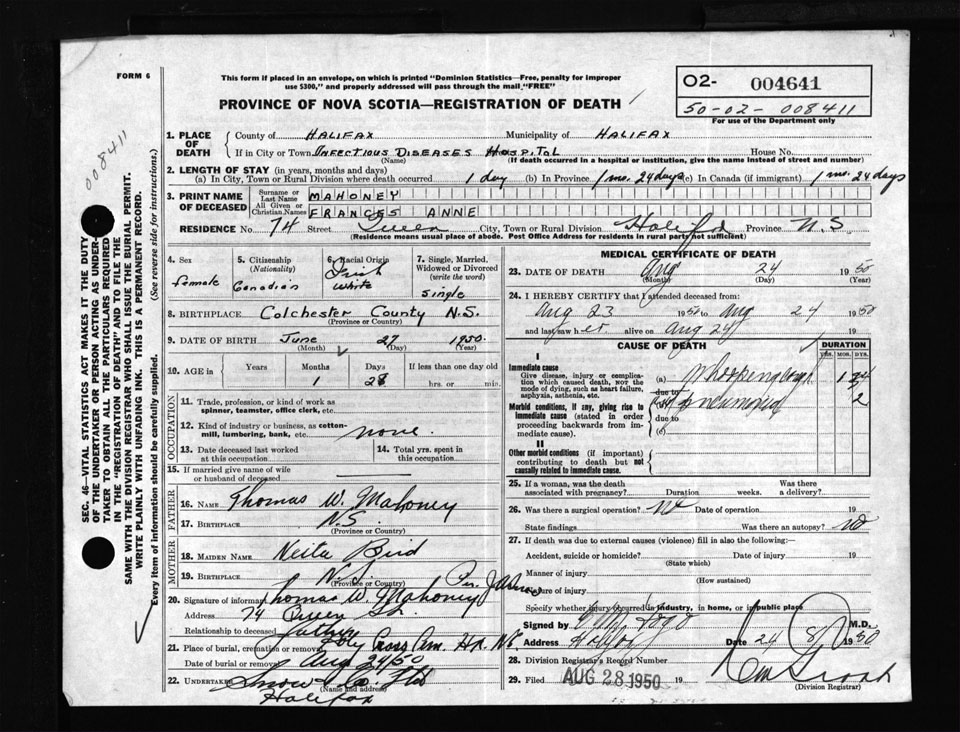 FORM 6
This form if placed in an envelope, on which is printed "Dominion Statistics—Free, penalty for improper
use $300," and properly addressed will pass through the mail "FREE"
PROVINCE OF NOVA SCOTIA—REGISTRATION OF DEATH
O2- 004641
50-02-008411
For use of the Department only
008411
SEC. 46—VITAL STATISTICS ACT MAKES IT THE DUTY
OF THE UNDERTAKER OR PERSON ACTING AS UNDER-
TAKER TO OBTAIN ALL THE PARTICULARS REQUIRED
IN THE "REGISTRATION OF DEATH" AND TO FILE THE
SAME WITH THE DIVISION REGISTRAR WHO SHALL ISSUE THE BURIAL PERMIT.
WRITE PLAINLY WITH UNFADING INK. THIS IS A PERMANENT RECORD.
Every item of information should be carefully supplied. (See reverse side for instructions.)
1. PLACE OF DEATH County of HALIFAX Municipality of HALIFAX
If in City or Town INFECTIOUS DISEASES HOSPITOL House No.
(Name) (If death occurred in a hospital or institution, give the name instead of street and number)
2. LENGTH OF STAY (in years, months and days)
(a) In City, Town or Rural Division where death occurred 1 day (b) In Province 1 mo. 24 days (c) In Canada (if immigrant) 1 mo. 24 days
3. PRINT NAME OF DECEASED Surname or Last Name MAHONEY
All Given or Christian Names FRANCES ANNE
RESIDENCE No. 74 Street Queen City, Town or Rural Division Halifax Province N.S
(Residence means usual place of abode. Post Office Address for residents in rural parts not sufficient)
4. Sex female
5. Citizenship (Nationality) Canadian
6. Racial Origin Irish White
7. Single, Married, Widowed or Divorced (write the word) single
8. BIRTHPLACE Colchester County N.S.
(Province or Country)
9. DATE OF BIRTH June 27 1950
(Month) (Day) (Year)
10. AGE Years Months Days If less than one day old
1 28 hrs. or min.
OCCUPATION
11. Trade, profession, or kind of work as
spinner, teamster, office clerk, etc.
12. Kind of industry or business, as cotton-
mill, lumbering, bank, etc. none.
13. Date deceased last worked at this occupation
14. Total yrs. spent in this occupation
15. If married give name of wife
or husband of deceased
FATHER
16. NAME Thomas W. Mahoney
17. BIRTHPLACE N.S.
(Province or Country)
MOTHER
18. MAIDEN NAME Neita Bird
19. BIRTHPLACE N.S
(Province or Country)
20. Signature of informant Thomas W. Mahoney
Address 74 Queen St.
Relationship to deceased father
21. Place of burial, cremation or removal Holy Cross Cem. Hx. N.S.
Date of burial or removal Aug 24/50
22. UNDERTAKER Snow & Co. Ltd
(Name and address)
Halifax
MEDICAL CERTIFICATE OF DEATH
23. DATE OF DEATH Aug 24 1950
(Month) (Day) (Year)
24. I HEREBY CERTIFY that I attended deceased from:
Aug 23 1950 to Aug 24 1950
and last saw her alive on Aug 24 19
CAUSE OF DEATH DURATION
YRS. MOS. DYS.
I
Immediate cause
Give disease, injury or complica-
tion which caused death, NOT the
mode of dying, such as heart failure,
asphyxia, asthenia, etc.
(a) Whooping Cough
due to
Morbid conditions, if any, giving rise to
immediate cause (stated in order
proceeding backwards from im-
mediate cause).
(b) pneumonia 2
due to
(c)
II
Other morbid conditions (if important)
contributing to death but not
causally related to immediate cause.
25. If a woman, was the death
associated with pregnancy? Duration weeks. Was there a delivery?
26. Was there a surgical operation? no Date of operation 19
State findings Was there an autopsy? no
27. If death was due to external causes (violence) fill in also the following:—
Accident, suicide or homicide? Date of injury 19
(State which)
Manner of injury
(How sustained)
Nature of injury
Specify whether injury occurred in industry, in home, or in public place
Signed by M.D.
Address Date 24 8 1950
28. Division Registrar's Record Number
29. Filed AUG 28 1950 19
(Division Registrar)